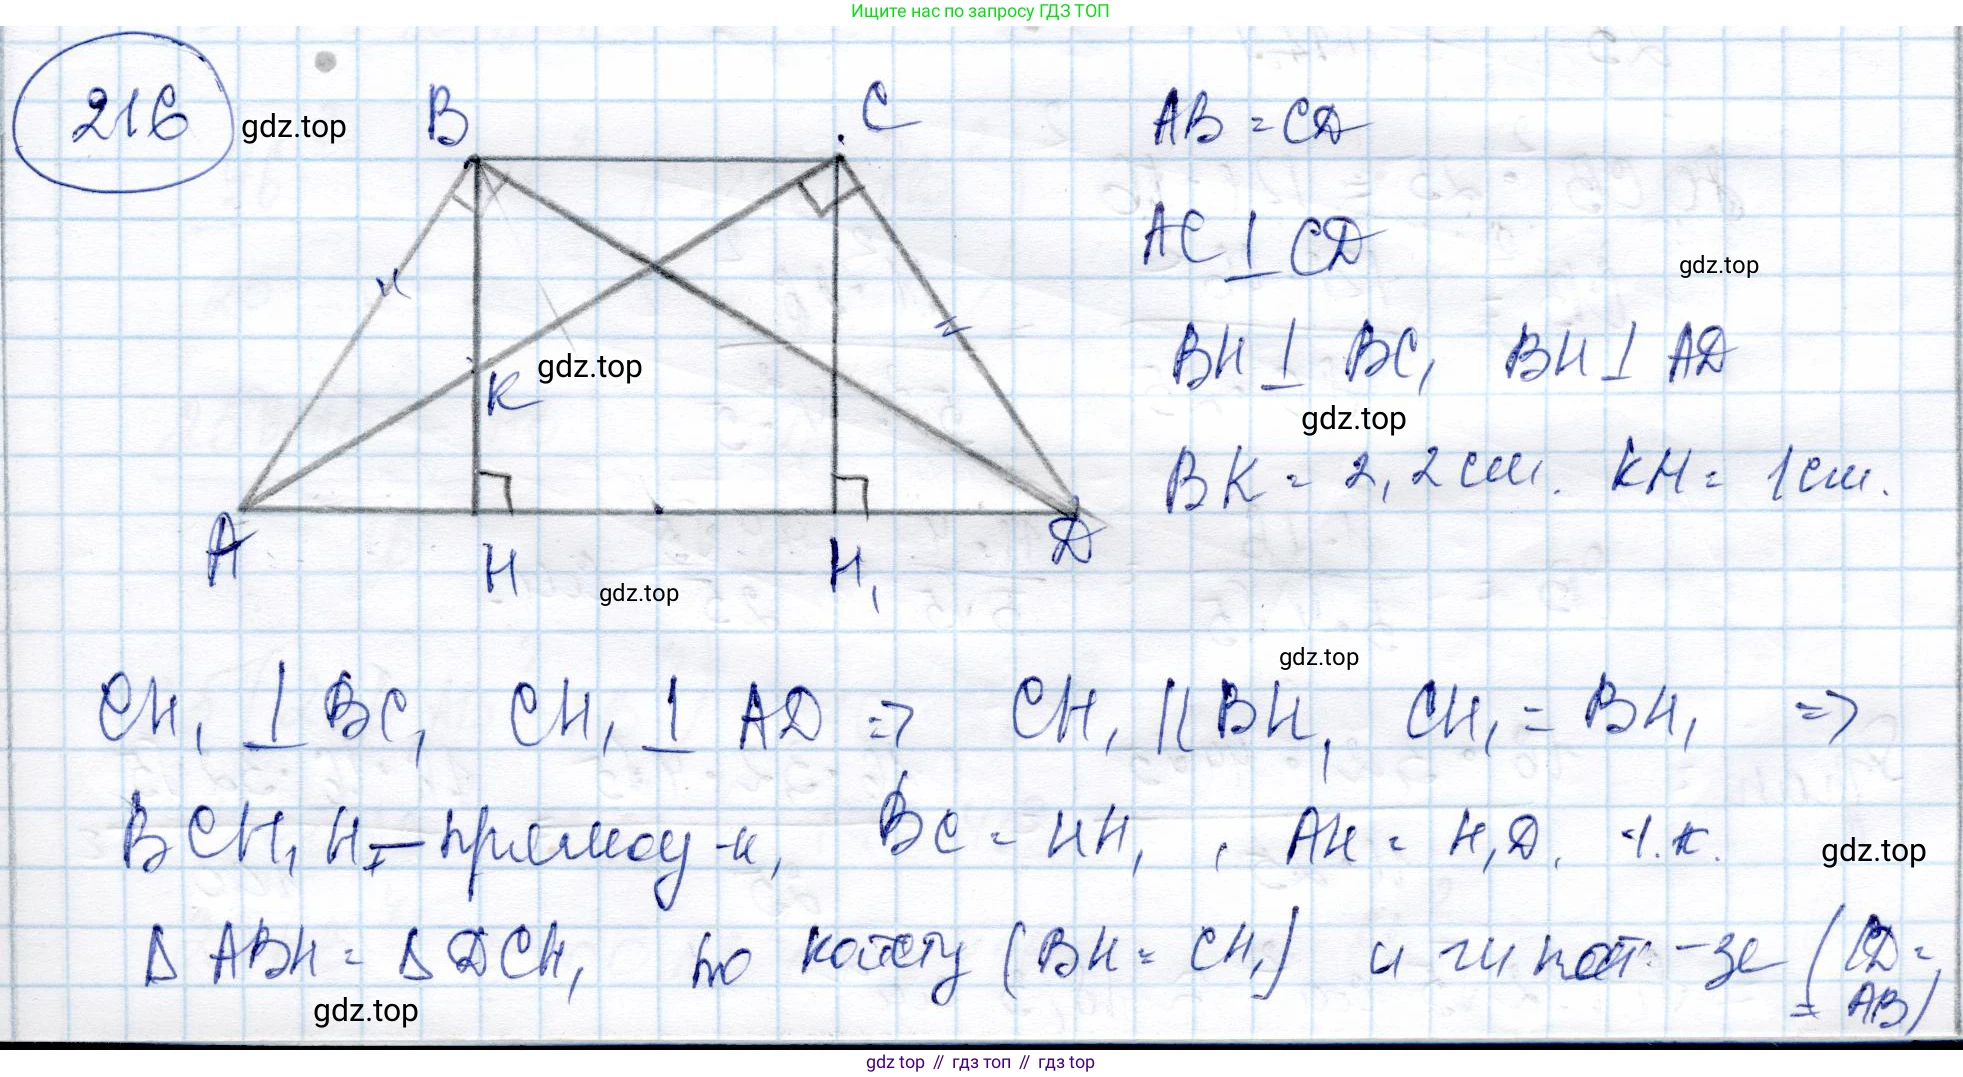 Ищите нас по запросу ГДЗ ТОП
216
gdz.top
B
C
AB = CD
AC ⊥ CD
gdz.top
BH ⊥ BC, BH ⊥ AD
gdz.top
K
gdz.top
BK = 2,2 см. KH = 1 см.
A
H
H₁
D
gdz.top
gdz.top
CH₁ ⊥ BC, CH₁ ⊥ AD => CH₁ || BH, CH₁ = BH, =>
BCH₁H – прямоуг-к, BC = HH₁, AH = H₁D, т.к.
gdz.top
Δ ABH = Δ DCH₁ по катету (BH = CH₁) и гипот-зе (CD =
= AB)
gdz.top
gdz top // гдз топ // гдз top